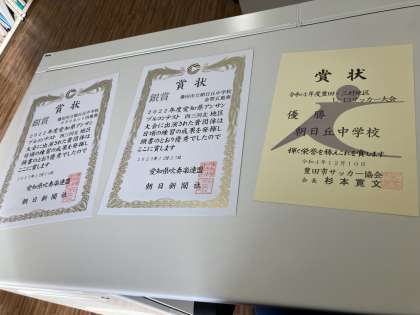 賞状
銀賞
2022年度愛知県アンサン
ブルコンテスト 西三河北 地区
大会に出演された貴団体は
日頃の練習の成果を発揮し
頭書のとおり優秀でしたので
ここに賞します
愛知県吹奏楽連盟
朝日新聞社
賞状
銀賞
豊田市立朝日丘中学校
金管五重奏
2022年度愛知県アンサン
ブルコンテスト 西三河北 地区
大会に出演された貴団体は
日頃の練習の成果を発揮し
頭書のとおり優秀でしたので
ここに賞します
愛知県吹奏楽連盟
朝日新聞社
賞状
サッカー大会
優勝
朝日丘中学校
輝く栄誉を称えこれを賞します
令和4年12月10日
豊田市サッカー協会
会長 杉本寛文